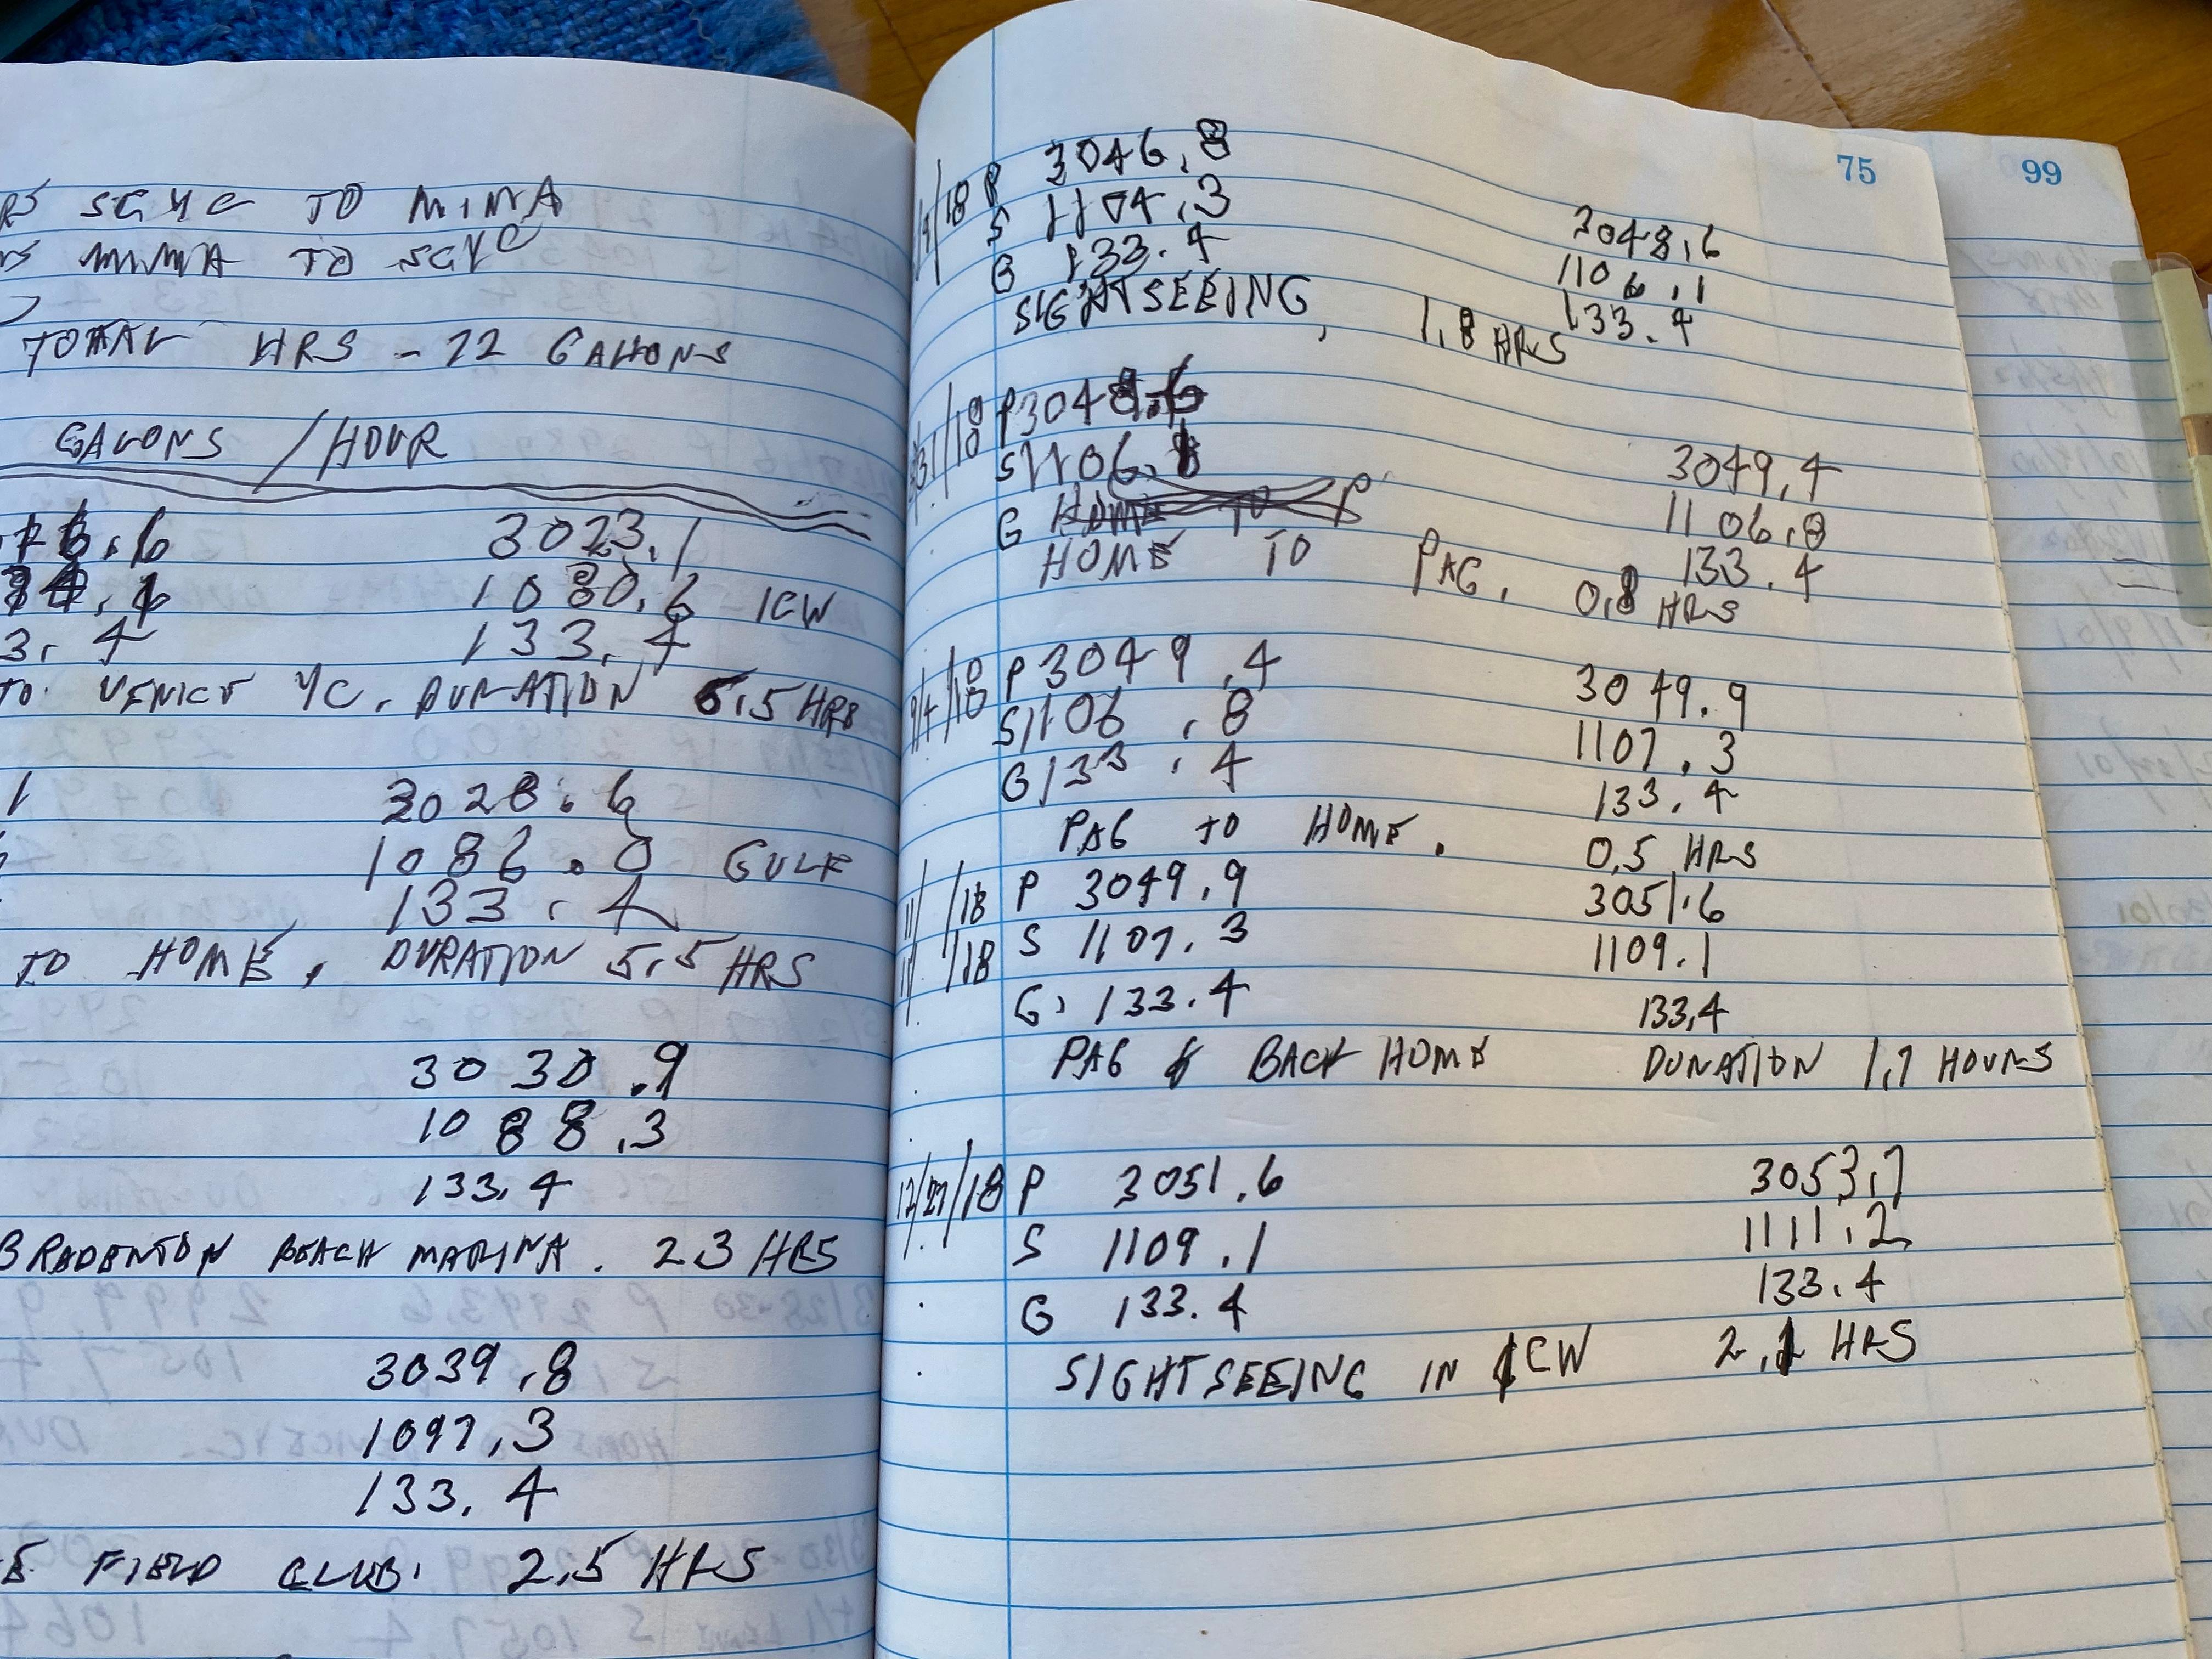 SGYC TO MIMA
MIMA TO SGYC
TOTAL HRS - 22 GALLONS
GALONS / HOUR
3023.1
1080.6 ICW
3.4 133.4
TO VENICE YC. DURATION 5.5 HRS
1 3028.6
1086.0 GULF
133.4
TO HOME, DURATION 5.5 HRS
3030.9
1088.3
133.4
BRADENTON BEACH MARINA. 23 HRS
3039.8
1097.3
133.4
FIELD CLUB. 2.5 HRS
75
99
/18 P 3046.8 3048.6
S 1104.3 1106.1
G 133.4 133.4
SIGHTSEEING, 1.8 HRS
31/18 P 3048.6 3049.4
S 1106.1 1106.8
G HOME TO P 133.4
HOME TO PAG. 0.8 HRS
9/4/18 P 3049.4 3049.9
S 1106.8 1107.3
G 133.4 133.4
PAG TO HOME. 0.5 HRS
11/ /18 P 3049.9 3051.6
11/ /18 S 1107.3 1109.1
G. 133.4 133.4
PAG & BACK HOME DURATION 1.7 HOURS
12/27/18 P 3051.6 3053.7
S 1109.1 1111.2
G 133.4 133.4
SIGHTSEEING IN ICW 2.1 HRS